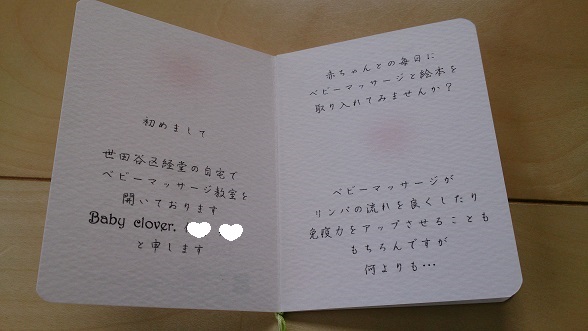 初めまして
世田谷区経堂の自宅で
ベビーマッサージ教室を
開いております
Baby clover.
と申します
赤ちゃんとの毎日に
ベビーマッサージと絵本を
取り入れてみませんか？
ベビーマッサージが
リンパの流れを良くしたり
免疫力をアップさせることも
もちろんですが
何よりも…